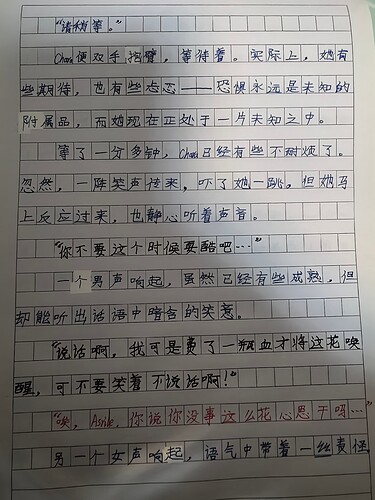 “请稍等。”
Chau便双手抱臂，等待着。实际上，她有
些期待，也有些忐忑——恐惧永远是未知的
附属品，而她现在正处于一片未知之中。
等了一分多钟，Chau已经有些不耐烦了。
忽然，一阵笑声传来，吓了她一跳。但她马
上反应过来，也静心听着声音。
“你不要这个时候耍酷吧…”
一个男声响起，虽然已经有些成熟，但
却能听出话语中暗含的笑意。
“说话啊，我可是费了一瓶血才将这花唤
醒，可不要笑着不说话啊！”
“唉，Asrile，你说你没事这么花心思干吗…”
另一个女声响起，语气中带着一丝责怪